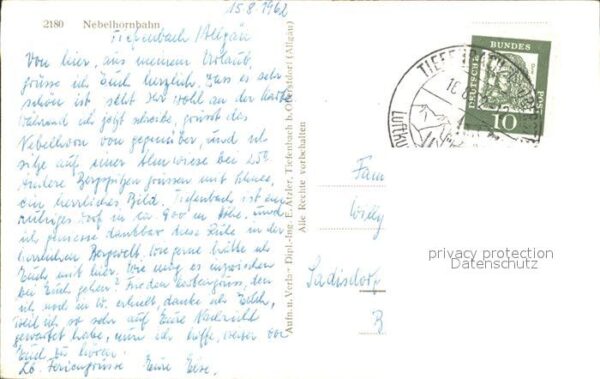 15.8.1962
2180 Nebelhornbahn
Tiefenbach /Allgäu
Von hier, aus meinem Urlaub,
grüsse ich Euch herzlich. Dass es sehr
schön ist, seht Ihr wohl an der Karte.
Während ich jetzt schreibe, grüsst das
Nebelhorn von gegenüber, und ich
sitze auf einer Almwiese bei 25°.
Andere Bergspitzen grüssen mit Schnee,
ein herrliches Bild. Tiefenbach ist ein
ruhiges Dorf in ca. 900 m Höhe, und
ich geniesse dankbar diese Ruhe in der
herrlichen Bergwelt. Wie gerne hätte ich
Euch mit hier. Wie mag es inzwischen
bei Euch gehen? Für den Kartengruss, den
ich noch in W. erhielt, danke ich Euch,
weil ich so sehr auf Eure Nachricht
gewartet habe, nun ich hoffe, weiter von
Euch zu hören.
Lb. Feriengrüsse Eure
Aufn. u. Verl.: Dipl.-Ing. E. Atzler, Tiefenbach b. Oberstdorf (Allgäu)
Alle Rechte vorbehalten
Fam
Willy
Sadisdorf
B
TIEFENBACH
LUFTKU
DEUTSCHE
BUNDES
POST
10
privacy protection
Datenschutz